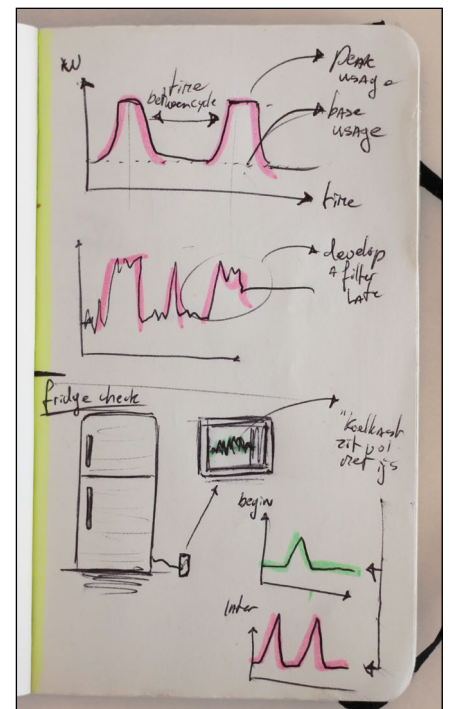 kW
time
between cycle
peak
usage
base
usage
time
develop
a filter
fridge check
"koelkast
zit vol
met ijs
begin